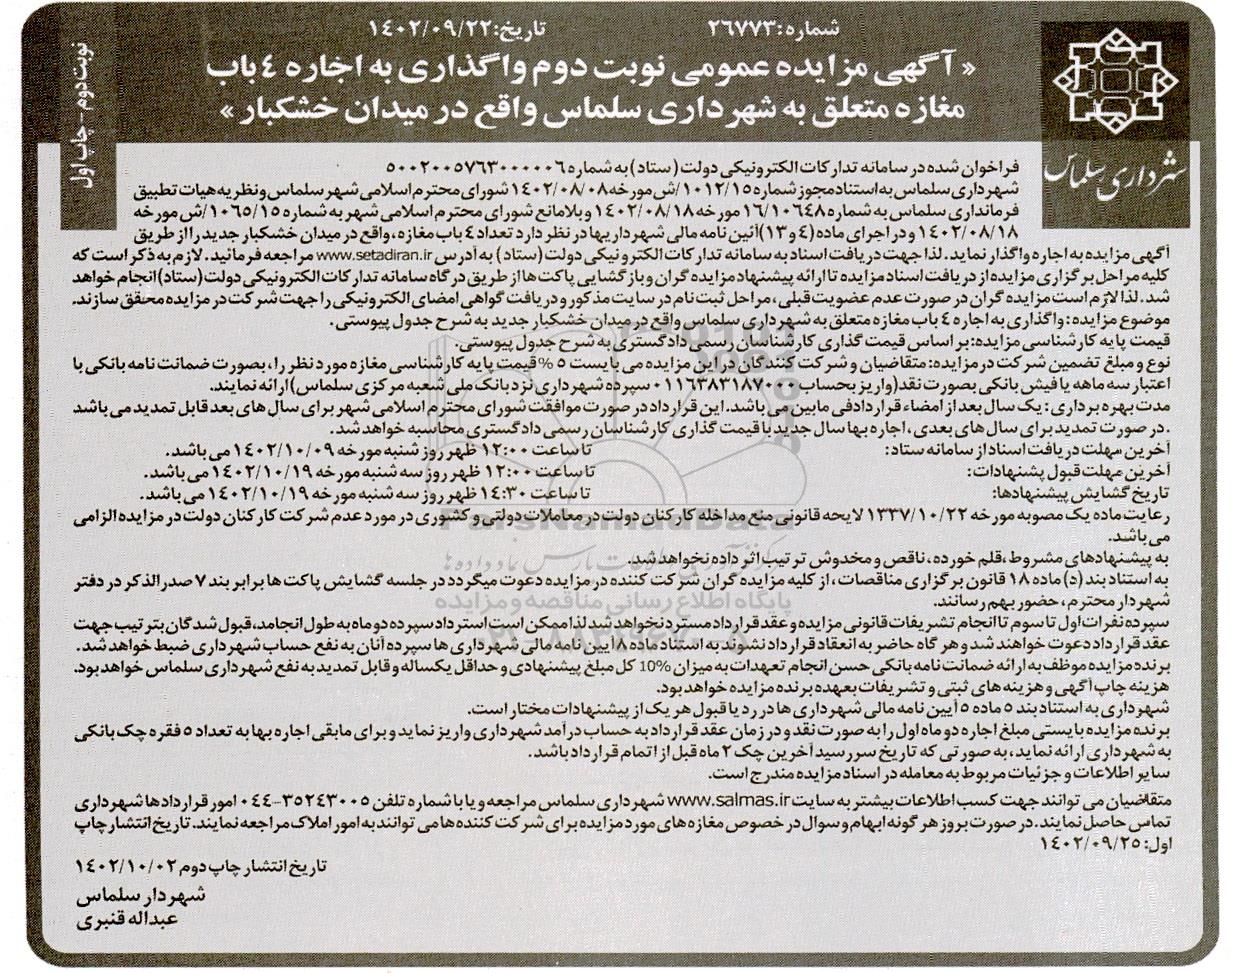 شماره:۲۶۷۷۳
تاریخ:۱۴۰۲/۰۹/۲۲
« آگهی مزایده عمومی نوبت دوم واگذاری به اجاره ۴ باب
مغازه متعلق به شهرداری سلماس واقع در میدان خشکبار »
نوبت دوم - چاپ اول
شهرداری سلماس
فراخوان شده در سامانه تدارکات الکترونیکی دولت (ستاد) به شماره ۵۰۰۲۰۰۵۷۶۳۰۰۰۰۰۶
شهرداری سلماس به استناد مجوز شماره ۱۰۱۲/۱۵/ش مورخه ۱۴۰۲/۰۸/۰۸ شورای محترم اسلامی شهر سلماس و نظریه هیات تطبیق
فرمانداری سلماس به شماره ۱۶/۱۰۶۴۸ مورخه ۱۴۰۲/۰۸/۱۸ و بلامانع شورای محترم اسلامی شهر به شماره ۱۰۶۵/۱۵/ش مورخه
۱۴۰۲/۰۸/۱۸ و در اجرای ماده (۴ و ۱۳) آئین نامه مالی شهرداریها در نظر دارد تعداد ۴ باب مغازه، واقع در میدان خشکبار جدید را از طریق
آگهی مزایده به اجاره واگذار نماید. لذا جهت دریافت اسناد به سامانه تدارکات الکترونیکی دولت (ستاد) به آدرس www.setadiran.ir مراجعه فرمائید. لازم به ذکر است که
کلیه مراحل برگزاری مزایده از دریافت اسناد مزایده تا ارائه پیشنهاد مزایده گران و بازگشایی پاکت ها از طریق درگاه سامانه تدارکات الکترونیکی دولت (ستاد) انجام خواهد
شد. لذا لازم است مزایده گران در صورت عدم عضویت قبلی، مراحل ثبت نام در سایت مذکور و دریافت گواهی امضای الکترونیکی را جهت شرکت در مزایده محقق سازند.
موضوع مزایده: واگذاری به اجاره ۴ باب مغازه متعلق به شهرداری سلماس واقع در میدان خشکبار جدید به شرح جدول پیوستی.
قیمت پایه کارشناسی مزایده: بر اساس قیمت گذاری کارشناسان رسمی دادگستری به شرح جدول پیوستی.
نوع و مبلغ تضمین شرکت در مزایده: متقاضیان و شرکت کنندگان در این مزایده می بایست ۵ % قیمت پایه کارشناسی مغازه مورد نظر را، بصورت ضمانت نامه بانکی با
اعتبار سه ماهه یا فیش بانکی بصورت نقد (واریز بحساب ۰۱۱۶۳۸۳۱۸۷۰۰۰ سپرده شهرداری نزد بانک ملی شعبه مرکزی سلماس) ارائه نمایند.
مدت بهره برداری: یک سال بعد از امضاء قرارداد فی مابین می باشد. این قرارداد در صورت موافقت شورای محترم اسلامی شهر برای سال های بعد قابل تمدید می باشد
.در صورت تمدید برای سال های بعدی، اجاره بها سال جدید با قیمت گذاری کارشناسان رسمی دادگستری محاسبه خواهد شد.
آخرین مهلت دریافت اسناد از سامانه ستاد: تا ساعت ۱۲:۰۰ ظهر روز شنبه مورخه ۱۴۰۲/۱۰/۰۹ می باشد.
آخرین مهلت قبول پشنهادات: تا ساعت ۱۲:۰۰ ظهر روز سه شنبه مورخه ۱۴۰۲/۱۰/۱۹ می باشد.
تاریخ گشایش پیشنهادها: تا ساعت ۱۴:۳۰ ظهر روز سه شنبه مورخه ۱۴۰۲/۱۰/۱۹ می باشد.
رعایت ماده یک مصوبه مورخه ۱۳۳۷/۱۰/۲۲ لایحه قانونی منع مداخله کارکنان دولت در معاملات دولتی و کشوری در مورد عدم شرکت کارکنان دولت در مزایده الزامی
می باشد.
به پیشنهادهای مشروط، قلم خورده، ناقص و مخدوش ترتیب اثر داده نخواهد شد.
به استناد بند (د) ماده ۱۸ قانون برگزاری مناقصات، از کلیه مزایده گران شرکت کننده در مزایده دعوت میگردد در جلسه گشایش پاکت ها برابر بند ۷ صدرالذکر در دفتر
شهردار محترم، حضور بهم رسانند.
سپرده نفرات اول تا سوم تا انجام تشریفات قانونی مزایده و عقد قرارداد مسترد نخواهد شد لذا ممکن است استرداد سپرده دو ماه به طول انجامد، قبول شدگان بترتیب جهت
عقد قرارداد دعوت خواهند شد و هر گاه حاضر به انعقاد قرارداد نشوند به استناد ماده ۸ آیین نامه مالی شهرداری ها سپرده آنان به نفع حساب شهرداری ضبط خواهد شد.
برنده مزایده موظف به ارائه ضمانت نامه بانکی حسن انجام تعهدات به میزان 10% کل مبلغ پیشنهادی و حداقل یکساله و قابل تمدید به نفع شهرداری سلماس خواهد بود.
هزینه چاپ آگهی و هزینه های ثبتی و تشریفات بعهده برنده مزایده خواهد بود.
شهرداری به استناد بند ۵ ماده ۵ آیین نامه مالی شهرداری ها در رد یا قبول هر یک از پیشنهادات مختار است.
برنده مزایده بایستی مبلغ اجاره دو ماه اول را به صورت نقد و در زمان عقد قرارداد به حساب درآمد شهرداری واریز نماید و برای مابقی اجاره بها به تعداد ۵ فقره چک بانکی
به شهرداری ارائه نماید، به صورتی که تاریخ سررسید آخرین چک ۲ ماه قبل از اتمام قرارداد باشد.
سایر اطلاعات و جزئیات مربوط به معامله در اسناد مزایده مندرج است.
متقاضیان می توانند جهت کسب اطلاعات بیشتر به سایت www.salmas.ir شهرداری سلماس مراجعه و یا با شماره تلفن ۳۵۲۴۳۰۰۵-۰۴۴ امور قراردادها شهرداری
تماس حاصل نمایند. در صورت بروز هر گونه ابهام و سوال در خصوص مغازه های مورد مزایده برای شرکت کننده ها می توانند به امور املاک مراجعه نمایند. تاریخ انتشار چاپ
اول: ۱۴۰۲/۰۹/۲۵
تاریخ انتشار چاپ دوم ۱۴۰۲/۱۰/۰۲
شهردار سلماس
عبداله قنبری
ParsNamadData
پایگاه اطلاع رسانی مناقصه و مزایده